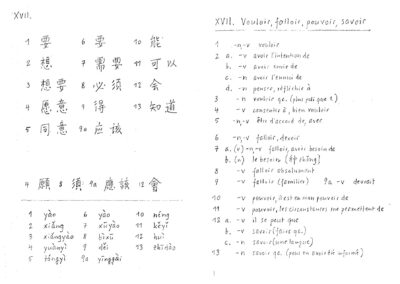 XVII.
1 要 6 要 10 能
2 想 7 需要 11 可以
3 想要 8 必須 12 会
4 愿意 9 得 13 知道
5 同意 9a 应该
4 願 8 須 9a 應該 12 會
1 yào 6 yào 10 néng
2 xiǎng 7 xūyào 11 kěyǐ
3 xiǎngyào 8 bìxū 12 huì
4 yuànyì 9 děi 13 zhīdào
5 tóngyì 9a yīnggāi
XVII. Vouloir, falloir, pouvoir, savoir
1 -n,-v vouloir
2 a. -v avoir l'intention de
b. -v avoir envie de
c. -n avoir l'ennui de
d. -n penser, réfléchir à
3 -n vouloir qc. (plus poli que 1)
4 -v consentir à, bien vouloir
5 -n,-v être d'accord de, avec
6 -n,-v falloir, devoir
7 a. (v) -n,-v falloir, avoir besoin de
b. (n) le besoin
8 -v falloir absolument
9 -v falloir (familier) 9a -v devrait
10 -v pouvoir, il est en mon pouvoir de
11 -v pouvoir, les circonstances me permettent de
12 a. -v il se peut que
b. -v savoir (faire qc.)
c. -n savoir (une langue)
13 -n savoir qc.